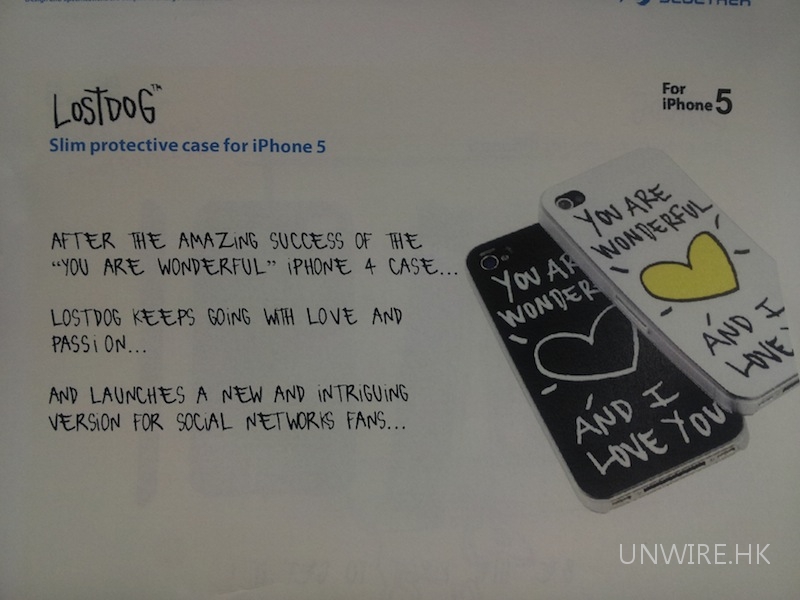 LOSTDOG™
Slim protective case for iPhone 5
For
iPhone 5
AFTER THE AMAZING SUCCESS OF THE
“YOU ARE WONDERFUL” iPHONE 4 CASE...
LOSTDOG KEEPS GOING WITH LOVE AND
PASSION...
AND LAUNCHES A NEW AND INTRIGUING
VERSION FOR SOCIAL NETWORKS FANS...
YOU ARE
WONDERFUL
AND I
LOVE
YOU
WONDER
AND I
LOVE YOU
UNWIRE.HK